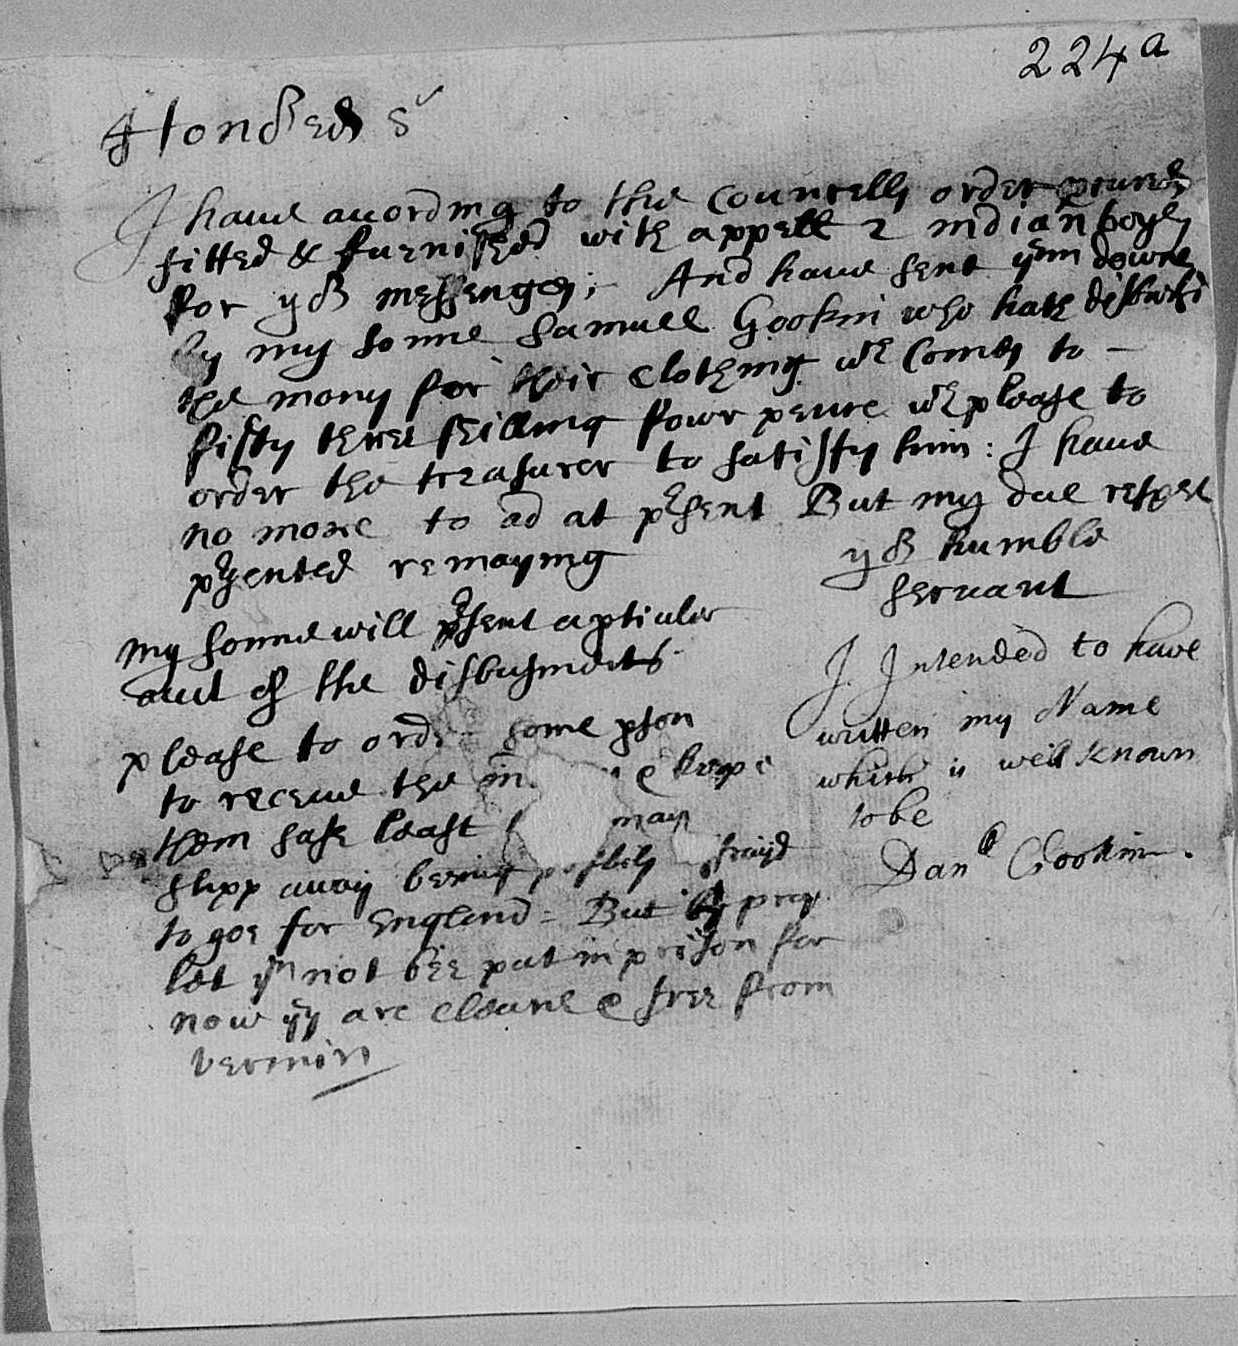 224a
Honored Sr
I haue acording to the Councells order procured
fitted & furnished with appell 2 indian boyes
for yor messengers; And haue sent ym downe
by my sonne Samuell Gookin who hath disbursed
the mony for their clothing wch comes to –
fifty three shilling fowr pence wch please to
order the treasurer to satisfy him: I haue
no more to ad at psent But my due respect
psented remayning
yor humble
seruant
my sonne will psent a pticuler
acct of the disbusments
please to order some pson
to receiue the in & keepe
them safe least may
slipp away being possibly afrayd
to goe for England = But I pray
let ym not bee put in prison for
now yy are cleane & free from
vermin
I Intended to have
written my Name
which is well known
to be
Danll Gookin.